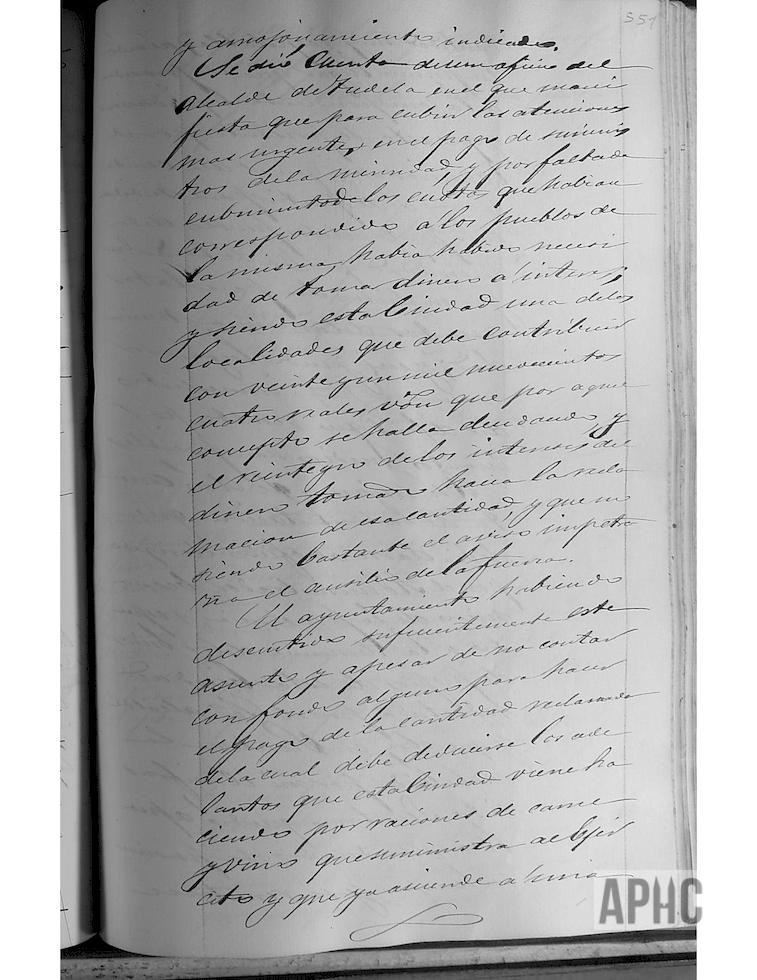 551
y amojonamiento indicado.
Se dió Cuenta de un oficio del
Alcalde de Tudela en el que mani
fiesta que para cubrir las atenciones
mas urgentes, en el pago de suminis
tros de la merindad y por falta de
cubrimiento de los cuotos que habian
correspondido a los pueblos de
la misma habia habido necesi
dad de tomar dinero a interes,
y siendo esta Ciudad una de las
localidades que debe contribuir
con veinte y un mil nuevecientos
cuatro reales vón que por aquel
concepto se halla deudando, y
el reintegro de los intereses del
dinero tomado hacia la recla
macion de esa cantidad, y que no
siendo bastante el aviso impetra
ria el ausilio de la fuerza.
El ayuntamiento habiendo
discutido suficientemente este
asunto y apesar de no contar
con fondo alguno para hacer
el pago de la cantidad reclamada
de la cual debe deducirse los ade
lantos que esta Ciudad viene ha
ciendo por raciones de carne
y vino que suministra al Ejer
cito y que ya asciende a una
APHC